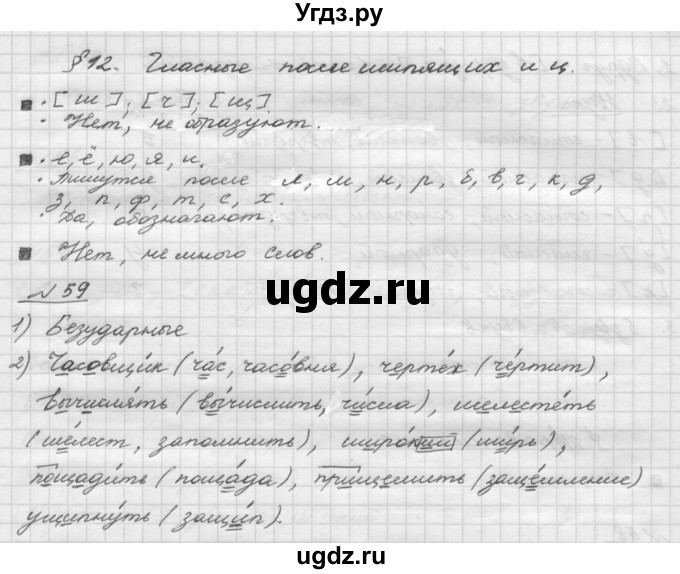 Угдз.ру
§12. Гласные после шипящих и ц.
• [ш]; [ч]; [щ].
• Нет, не образуют.
• е, ё, ю, я, и.
• Пишутся после л, м, н, р, б, в, г, к, д,
з, п, ф, т, с, х.
• Да, обозначают.
Нет, не много слов.
ugdz.ru
№59
1) Безударные
2) Часовщи́к (ча́с, часо́вня), чертёж (че́ртит),
вычисля́ть (вы́числить, чи́сла), шелесте́ть
(ше́лест, запомнить), широ́кий (ши́рь),
пощади́ть (поща́да), прищемить (защемление)
ущипну́ть (защи́п).
ugdz.ru